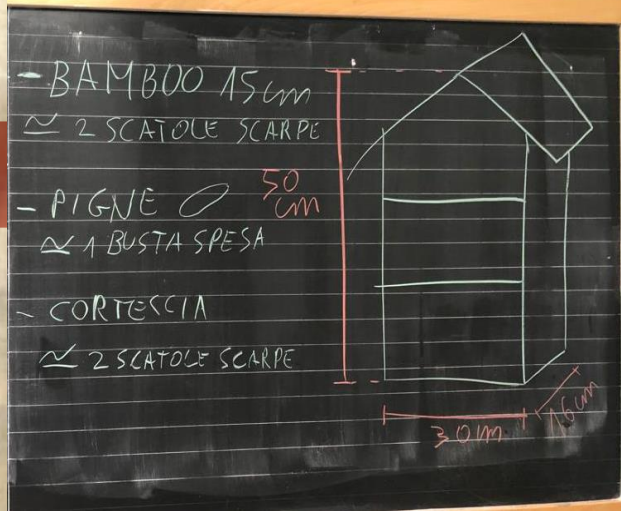 - BAMBOO 15cm
≃ 2 SCATOLE SCARPE
- PIGNE
≃ 1 BUSTA SPESA
- CORTECCIA
≃ 2 SCATOLE SCARPE
50
cm
30 m
16 cm